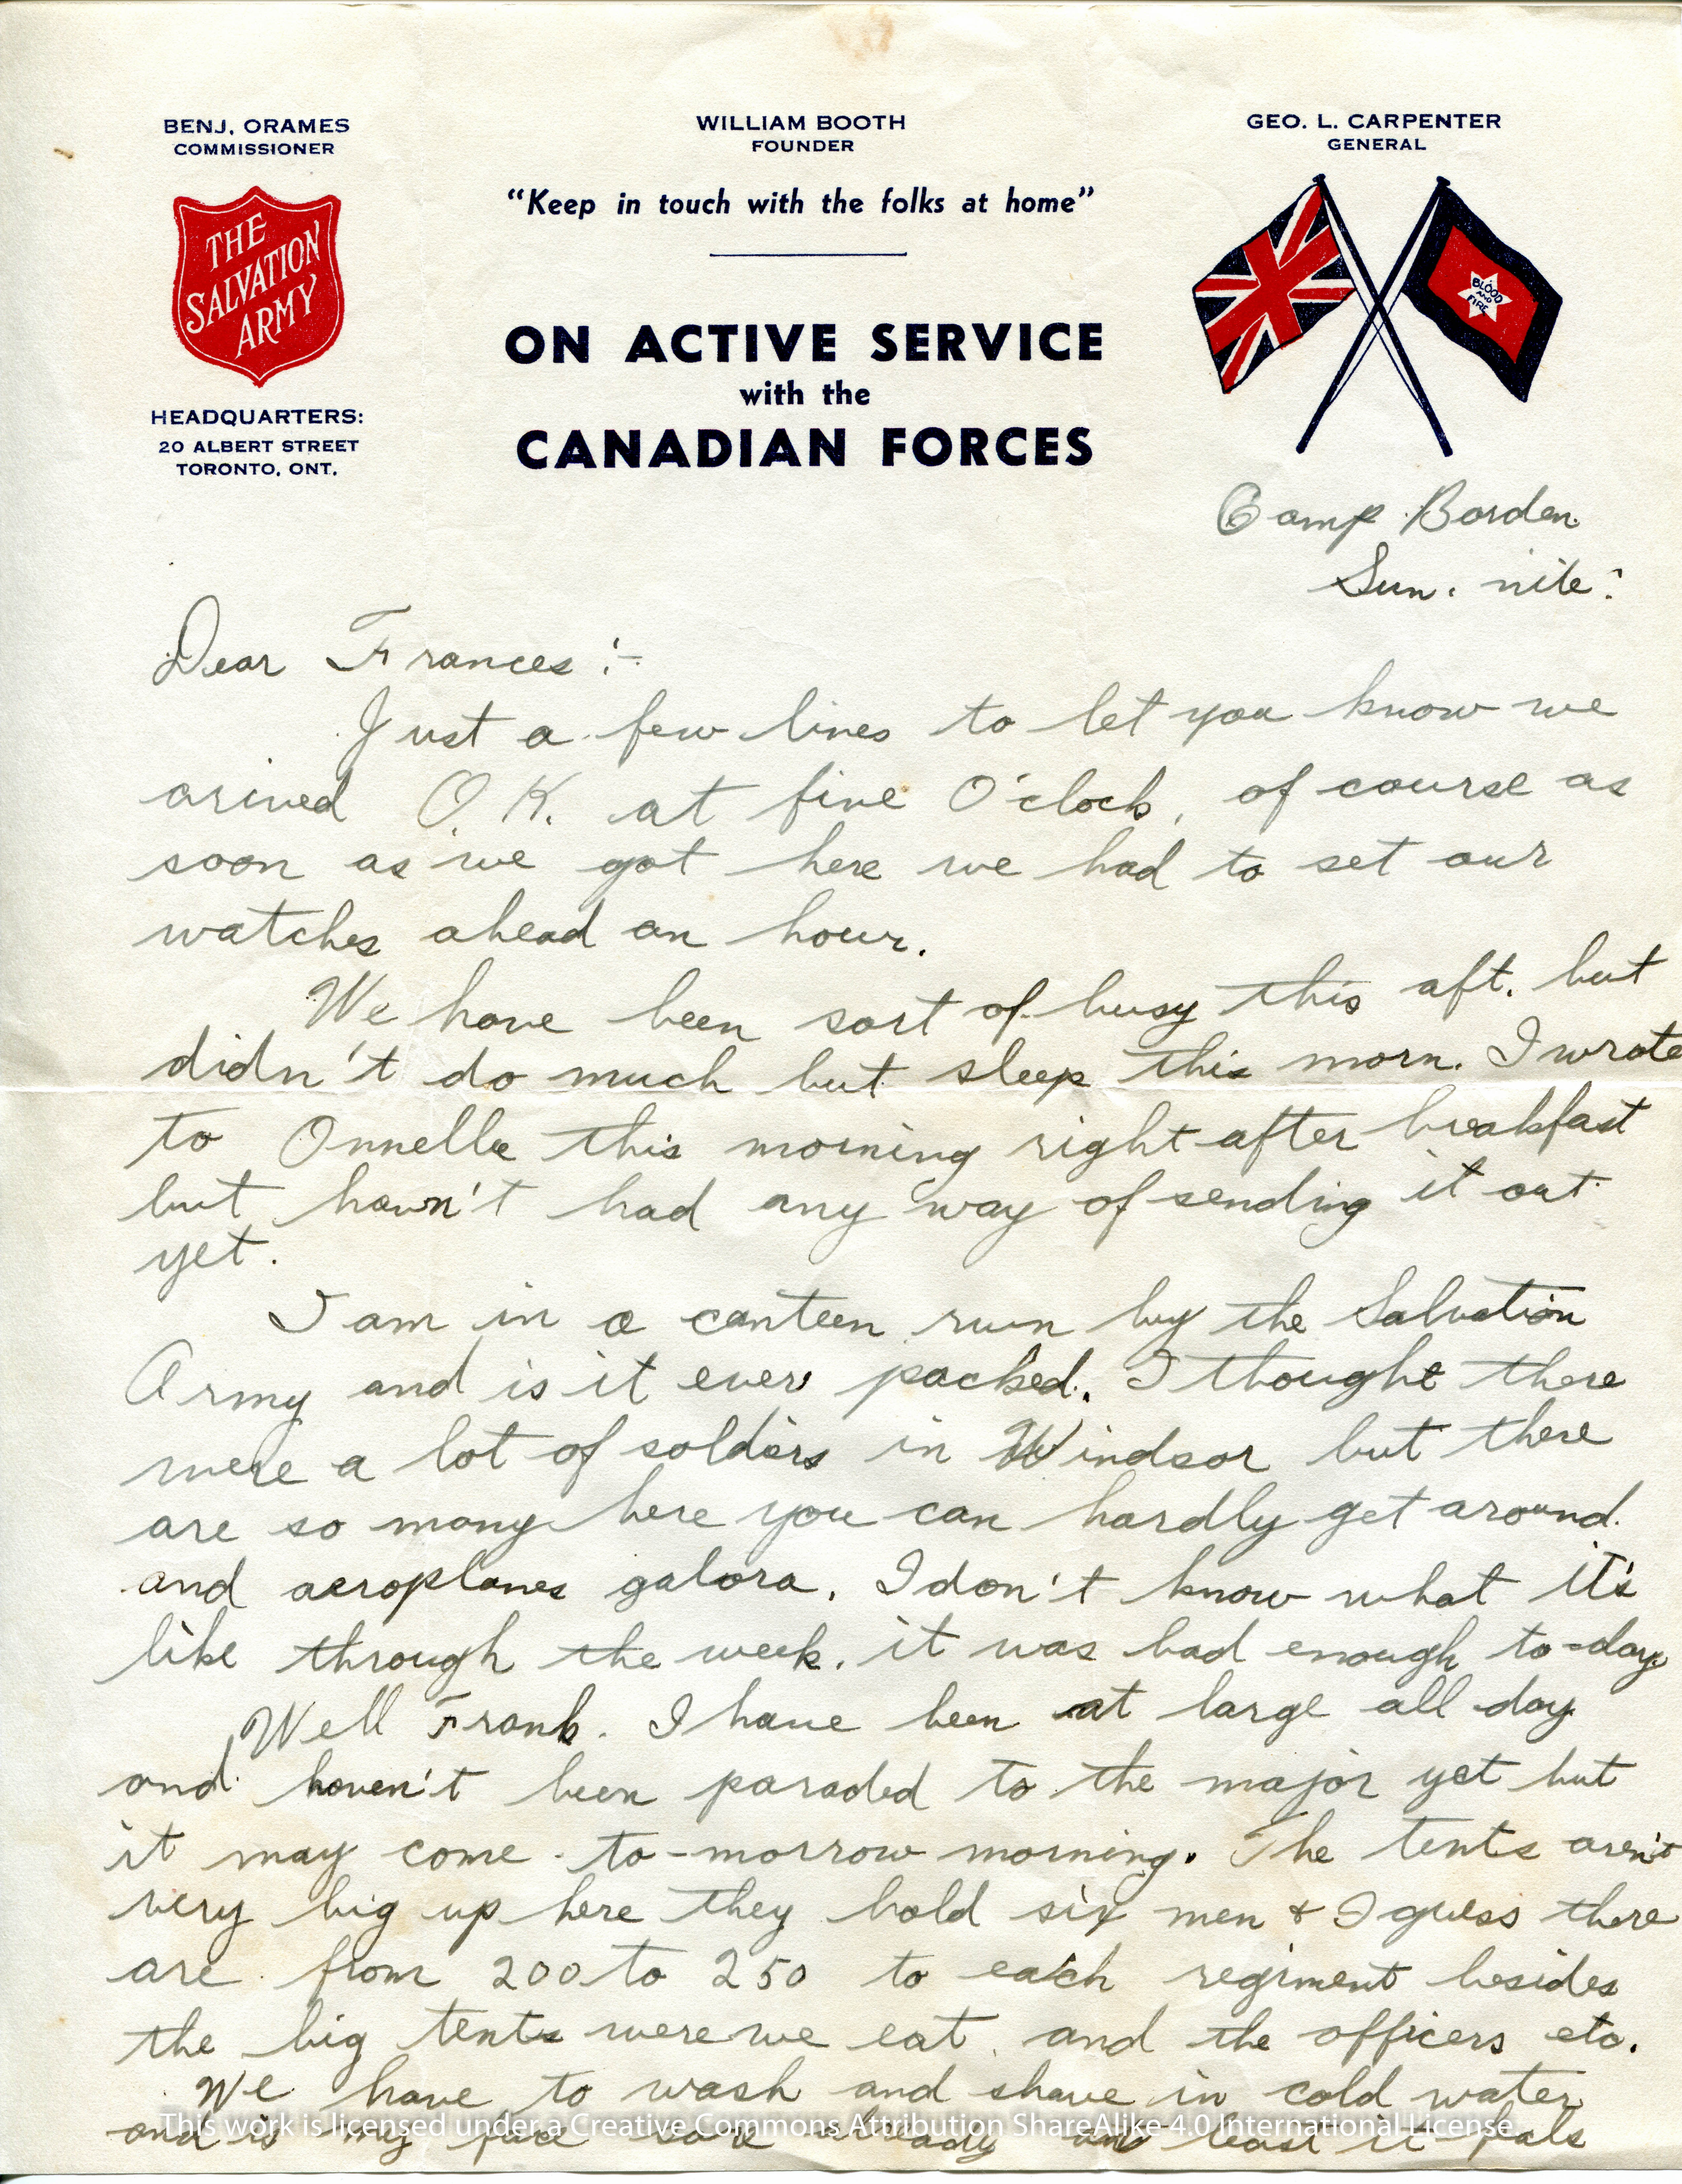 BENJ. ORAMES
COMMISSIONER
THE
SALVATION
ARMY
HEADQUARTERS:
20 ALBERT STREET
TORONTO, ONT.
WILLIAM BOOTH
FOUNDER
"Keep in touch with the folks at home"
ON ACTIVE SERVICE
with the
CANADIAN FORCES
GEO. L. CARPENTER
GENERAL
BLOOD
AND
FIRE
Camp Borden
Sun. nite:
Dear Frances:-
Just a few lines to let you know we
arived O.K. at five O'clock, of course as
soon as we got here we had to set our
watches ahead an hour.
We have been sort of busy this aft. but
didn't do much but sleep this morn. I wrote
to Onnelle this morning right after breakfast
but havn't had any way of sending it out
yet.
I am in a canteen run by the Salvation
Army and is it ever packed. I thought there
were a lot of soldiers in Windsor but there
are so many here you can hardly get around.
and aeroplanes galora. I don't know what it's
like through the week, it was bad enough to-day.
Well Frank. I have been at large all day
and haven't been paraded to the major yet but
it may come to-morrow morning. The tents aren't
very big up here they hold six men & I guess there
are from 200 to 250 to each regiment besides
the big tents were we eat and the officers etc.
We have to wash and shave in cold water
and is my face sore already least it feels
This work is licensed under a Creative Commons Attribution ShareAlike 4.0 International License